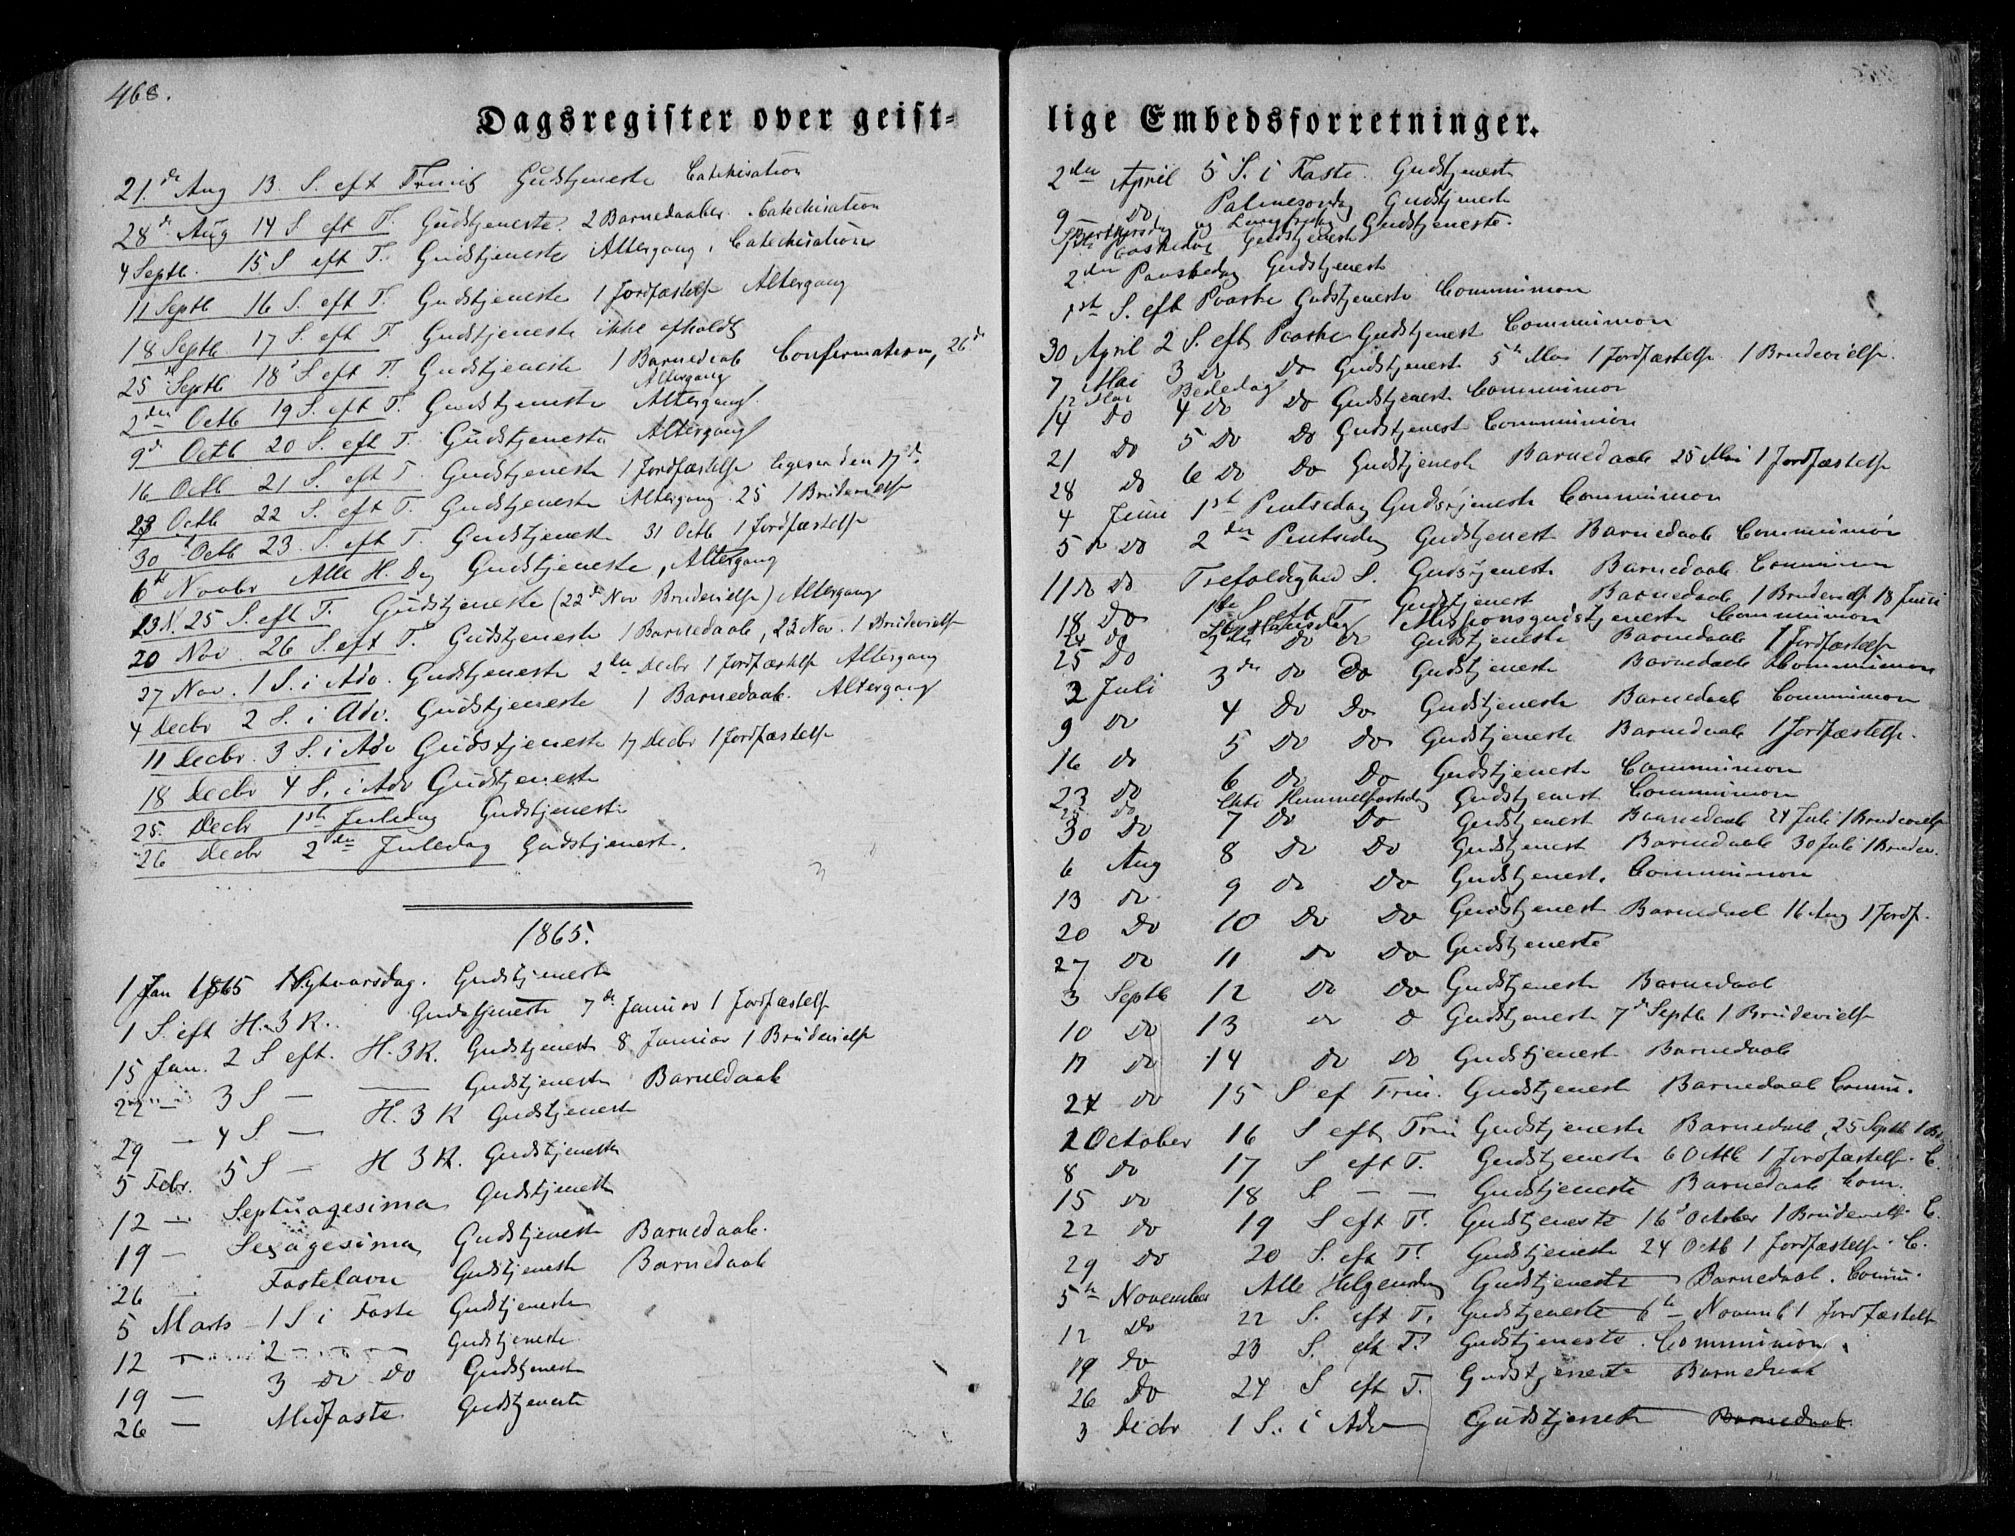 468.
Dagsregister over geist-
21.de Aug 13. S. eft Trinit Gudstjeneste Catchisation
28de Aug 14 S. eft T. Gudstjeneste. 2 Barnedaaber. Catechisation
4 Septb. 15 S eft T. Gudstjeneste Altergang. Catechisation
11 Septb 16 S. eft T. Gudstjeneste 1 Jordfæstelse Altergang
18 Septb. 17 S. eft T. Gudstjeneste ikke afholdt
25 Septb 18 S eft T. Gudstjeneste 1 Barnedaab Confirmation, 26de
Altergang
2den Octb 19 S. eft T. Gudstjeneste Altergang.
9de Octb 20 S. eft T. Gudstjeneste Altergang
16 Octb 21 S. eft T. Gudstjeneste 1 Jordfæstelse ligesaa den 17de
23 Octb 22 S. eft T. Gudstjeneste Altergang. 25 1 Brudevielse
30 Octb 23. S. eft T. Gudstjeneste 31 Octb 1 Jordfæstelse
6te Novbr Alle H. Dag Gudstjeneste, Altergang
13 N. 25 S. eft T. Gudstjeneste (22de Nov Brudevielse) Altergang
20 Nov. 26 S. eft T. Gudstjeneste 1 Barnedaab, 23 Nov. 1 Brudevielse
27 Nov. 1 S. i Adv. Gudstjeneste 2den Decbr 1 Jordfæstelse Altergang
4 Decbr 2 S. i Adv. Gudstjeneste 1 Barnedaab. Altergang
11 Decbr. 3 S. i Adv Gudstjeneste 17 Decbr 1 Jordfæstelse
18 Decbr 4 S. i Adv Gudstjeneste
25. Decbr 1ste Juledag Gudstjeneste
26 Decbr 2den Juledag Gudstjenest.
1865.
1 Jan 1865 Nytaarsdag. Gudstjeneste
1 S. eft H. 3 K. Gudstjeneste 7de Januar 1 Jordfæstelse
15 Jan. 2 S eft. H. 3 K. Gudstjeneste 8 Januar 1 Brudevielse
22 — 3 S — — Gudstjeneste Barnedaab
29 — 4 S. — H. 3 K Gudstjeneste
5 Febr. 5 S — H 3 K. Gudstjeneste
12 — Septuagesima Gudstjeneste
19 — Sexagesima Gudstjeneste Barnedaab.
26 — Fastelavn Gudstjeneste Barnedaab
5 Marts 1 S i Faste Gudstjeneste
12 — 2 — — Gudstjeneste
19 — 3 Do Do Gudstjeneste
26 — Midfaste Gudstjeneste
lige Embedsforretninger.
2den April 5 S. i Faste. Gudstjeneste
9 Do Palmesondag Gudstjeneste
Skjærthorsdag og Langfredag Gudstjeneste.
1ste Paaskedag Gudstjeneste
2den Paaskedag Gudstjeneste
1ste S. eft Paaske Gudstjeneste Communion
30 April 2 S. eft Paaske Gudstjenest Communion
7 Mai 3 Do Do Gudstjenest 5te Mai 1 Jordfæstelse. 1 Brudevielse.
12 Mai Bededag
14 Do 4 Do Do Gudstjenest Communion
21 Do 5 Do Do Gudstjenest Communion
28 Do 6 Do Do Gudstjeneste Barnedaab 25 Mai 1 Jordfæstelse
4 Juni 1ste Pintsedag Gudstjeneste Communion
5 Do 2den Pintsedag Gudstjenest Barnedaab Communion
11 Do Trefoldighed S. Gudstjeneste Barnedaab. Communion
18 Do 1ste S eft T. Gudstjenest Barnedaab 1 Brudevielse 18 Juni
24 Do St. Hansdag Missionsgudstjeneste Communion
25 Do 2den Do Do Gudstjeneste Barnedaab 1 Jordfæstelse
2 Juli 3de Do Do Gudstjeneste Barnedaab Communion
9 Do 4 Do Do Gudstjeneste Barnedaab Communion
16 Do 5 Do Do Gudstjeneste Barnedaab 1 Jordfæstelse.
23 Do 6 Do Do Gudstjeneste Communion
Do Himmelfartsdag Gudstjenest Communion
30 Do 7 Do Do Gudstjenest Barnedaab 24 Juli 1 Brudevielse
6 Aug 8 Do Do Gudstjenest Barnedaab 30 Juli 1 Brudev.
13 Do 9 Do Do Gudstjenest. Communion
20 Do 10 Do Do Gudstjenest Barnedaab 16 Aug 1 Jordf.
27 Do 11 Do Do Gudstjeneste
3 Septb 12 Do Do Gudstjeneste Barnedaab
10 Do 13 Do Do Gudstjeneste 7de Septb 1 Brudevielse
17 Do 14 Do Do Gudstjeneste Barnedaab
24 Do 15 S ef Trin. Gudstjeneste Barnedaab Comm.
1 October 16 S eft Trin Gudstjeneste Barnedaab, 25 Septb 1 Br
8 Do 17 S eft T. Gudstjeneste 6 Octb 1 Jordfæstelse. C.
15 Do 18 S. — — Gudstjeneste Barnedaab Com.
22 Do 19 S eft T. Gudstjeneste 16d October 1 Brudevielse C.
29 Do 20 S. eft T. Gudstjeneste 24 Octb 1 Jordfæstelse. C.
5te November Alle Helgensdag Gudstjeneste Barnedaab. Comm.
12 Do 22 S. eft T. Gudstjeneste 6te Novemb 1 Jordfæstelse
19 Do 23 S. eft T. Gudstjeneste. Communion.
26 Do 24 S eft T. Gudstjeneste Barnedaab
3 Decbr 1 S. i Adv Gudstjeneste Barnedaab.